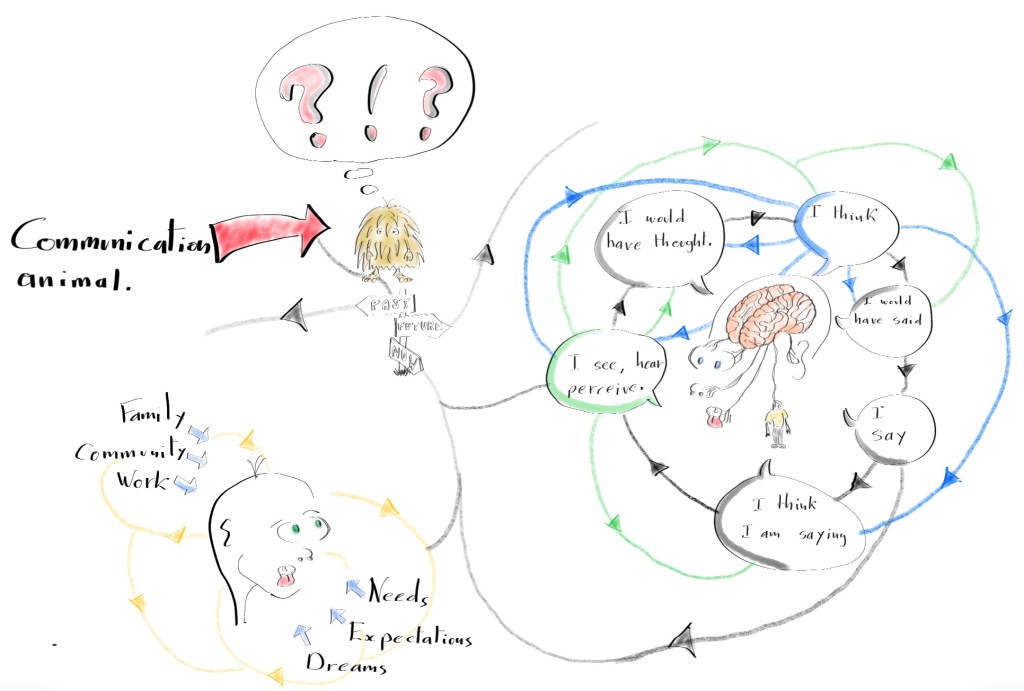 ? ! ?
Communication
animal.
PAST
FUTURE
NOW
I would
have thought.
I think
I would
have said
I see, hear
perceive.
I
say
I think
I am saying
Family
Community
Work
Needs
Expectations
Dreams